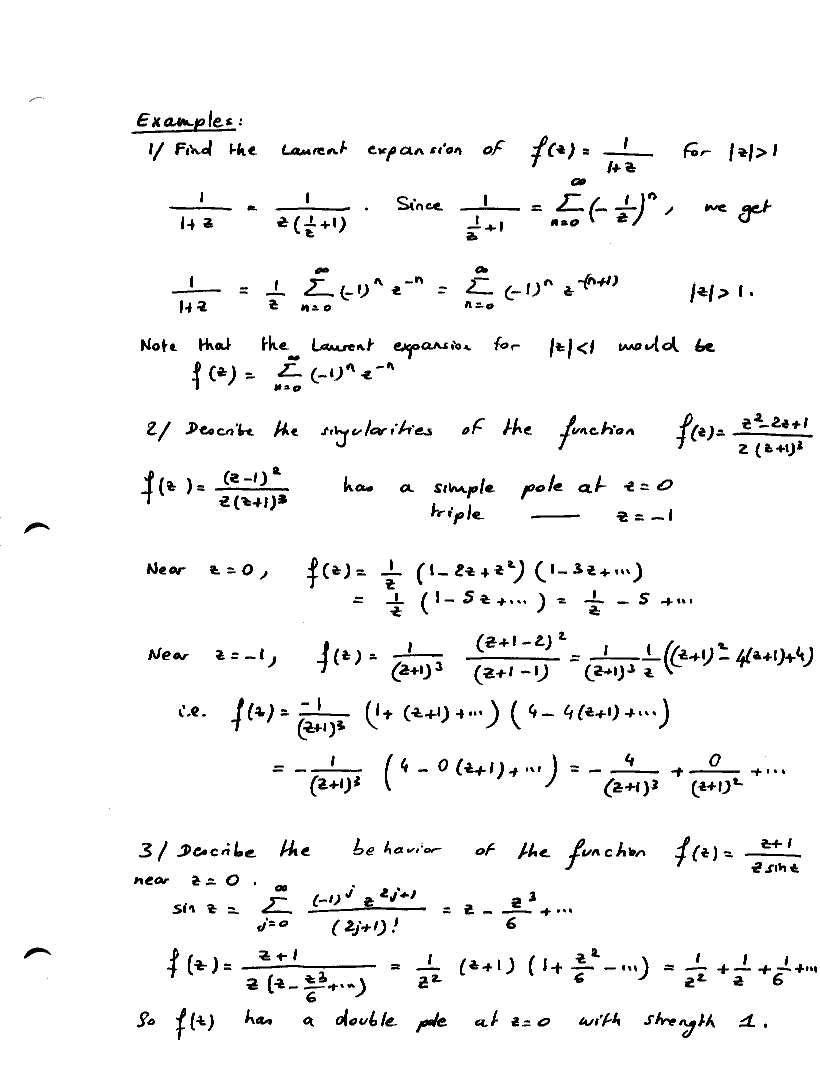 Examples:
1/ Find the Laurent expansion of f(z) = 1/(1+z) for |z|>1
1/(1+z) = 1/(z(1/z+1)) . Since 1/(1/z+1) = ∑_{n=0}^{∞} (-1/z)^n, we get
1/(1+z) = 1/z ∑_{n=0}^{∞} (-1)^n z^{-n} = ∑_{n=0}^{∞} (-1)^n z^{-(n+1)} |z|>1.
Note that the Laurent expansion for |z|<1 would be
f(z) = ∑_{n=0}^{∞} (-1)^n z^{-n}
2/ Describe the singularities of the function f(z) = (z^2-2z+1)/(z(z+1)^3)
f(z) = (z-1)^2/(z(z+1)^3) has a simple pole at z=0
triple — z=-1
Near z=0, f(z) = 1/z (1-2z+z^2)(1-3z+...)
= 1/z (1-5z+...) = 1/z - 5 + ...
Near z=-1, f(z) = 1/(z+1)^3 (z+1-2)^2/(z+1-1) = 1/(z+1)^3 1/z ((z+1)^2 - 4(z+1)+4)
i.e. f(z) = -1/(z+1)^3 (1+(z+1)+...)(4-4(z+1)+...)
= - 1/(z+1)^3 (4-0(z+1)+...) = - 4/(z+1)^3 + 0/(z+1)^2 + ...
3/ Describe the behavior of the function f(z) = (z+1)/(z sin z)
near z=0.
sin z = ∑_{j=0}^{∞} (-1)^j z^{2j+1}/(2j+1)! = z - z^3/6 + ...
f(z) = (z+1)/(z(z-z^3/6+...)) = 1/z^2 (z+1)(1+z^2/6-...) = 1/z^2 + 1/z + 1/6 + ...
So f(z) has a double pole at z=0 with strength 1.